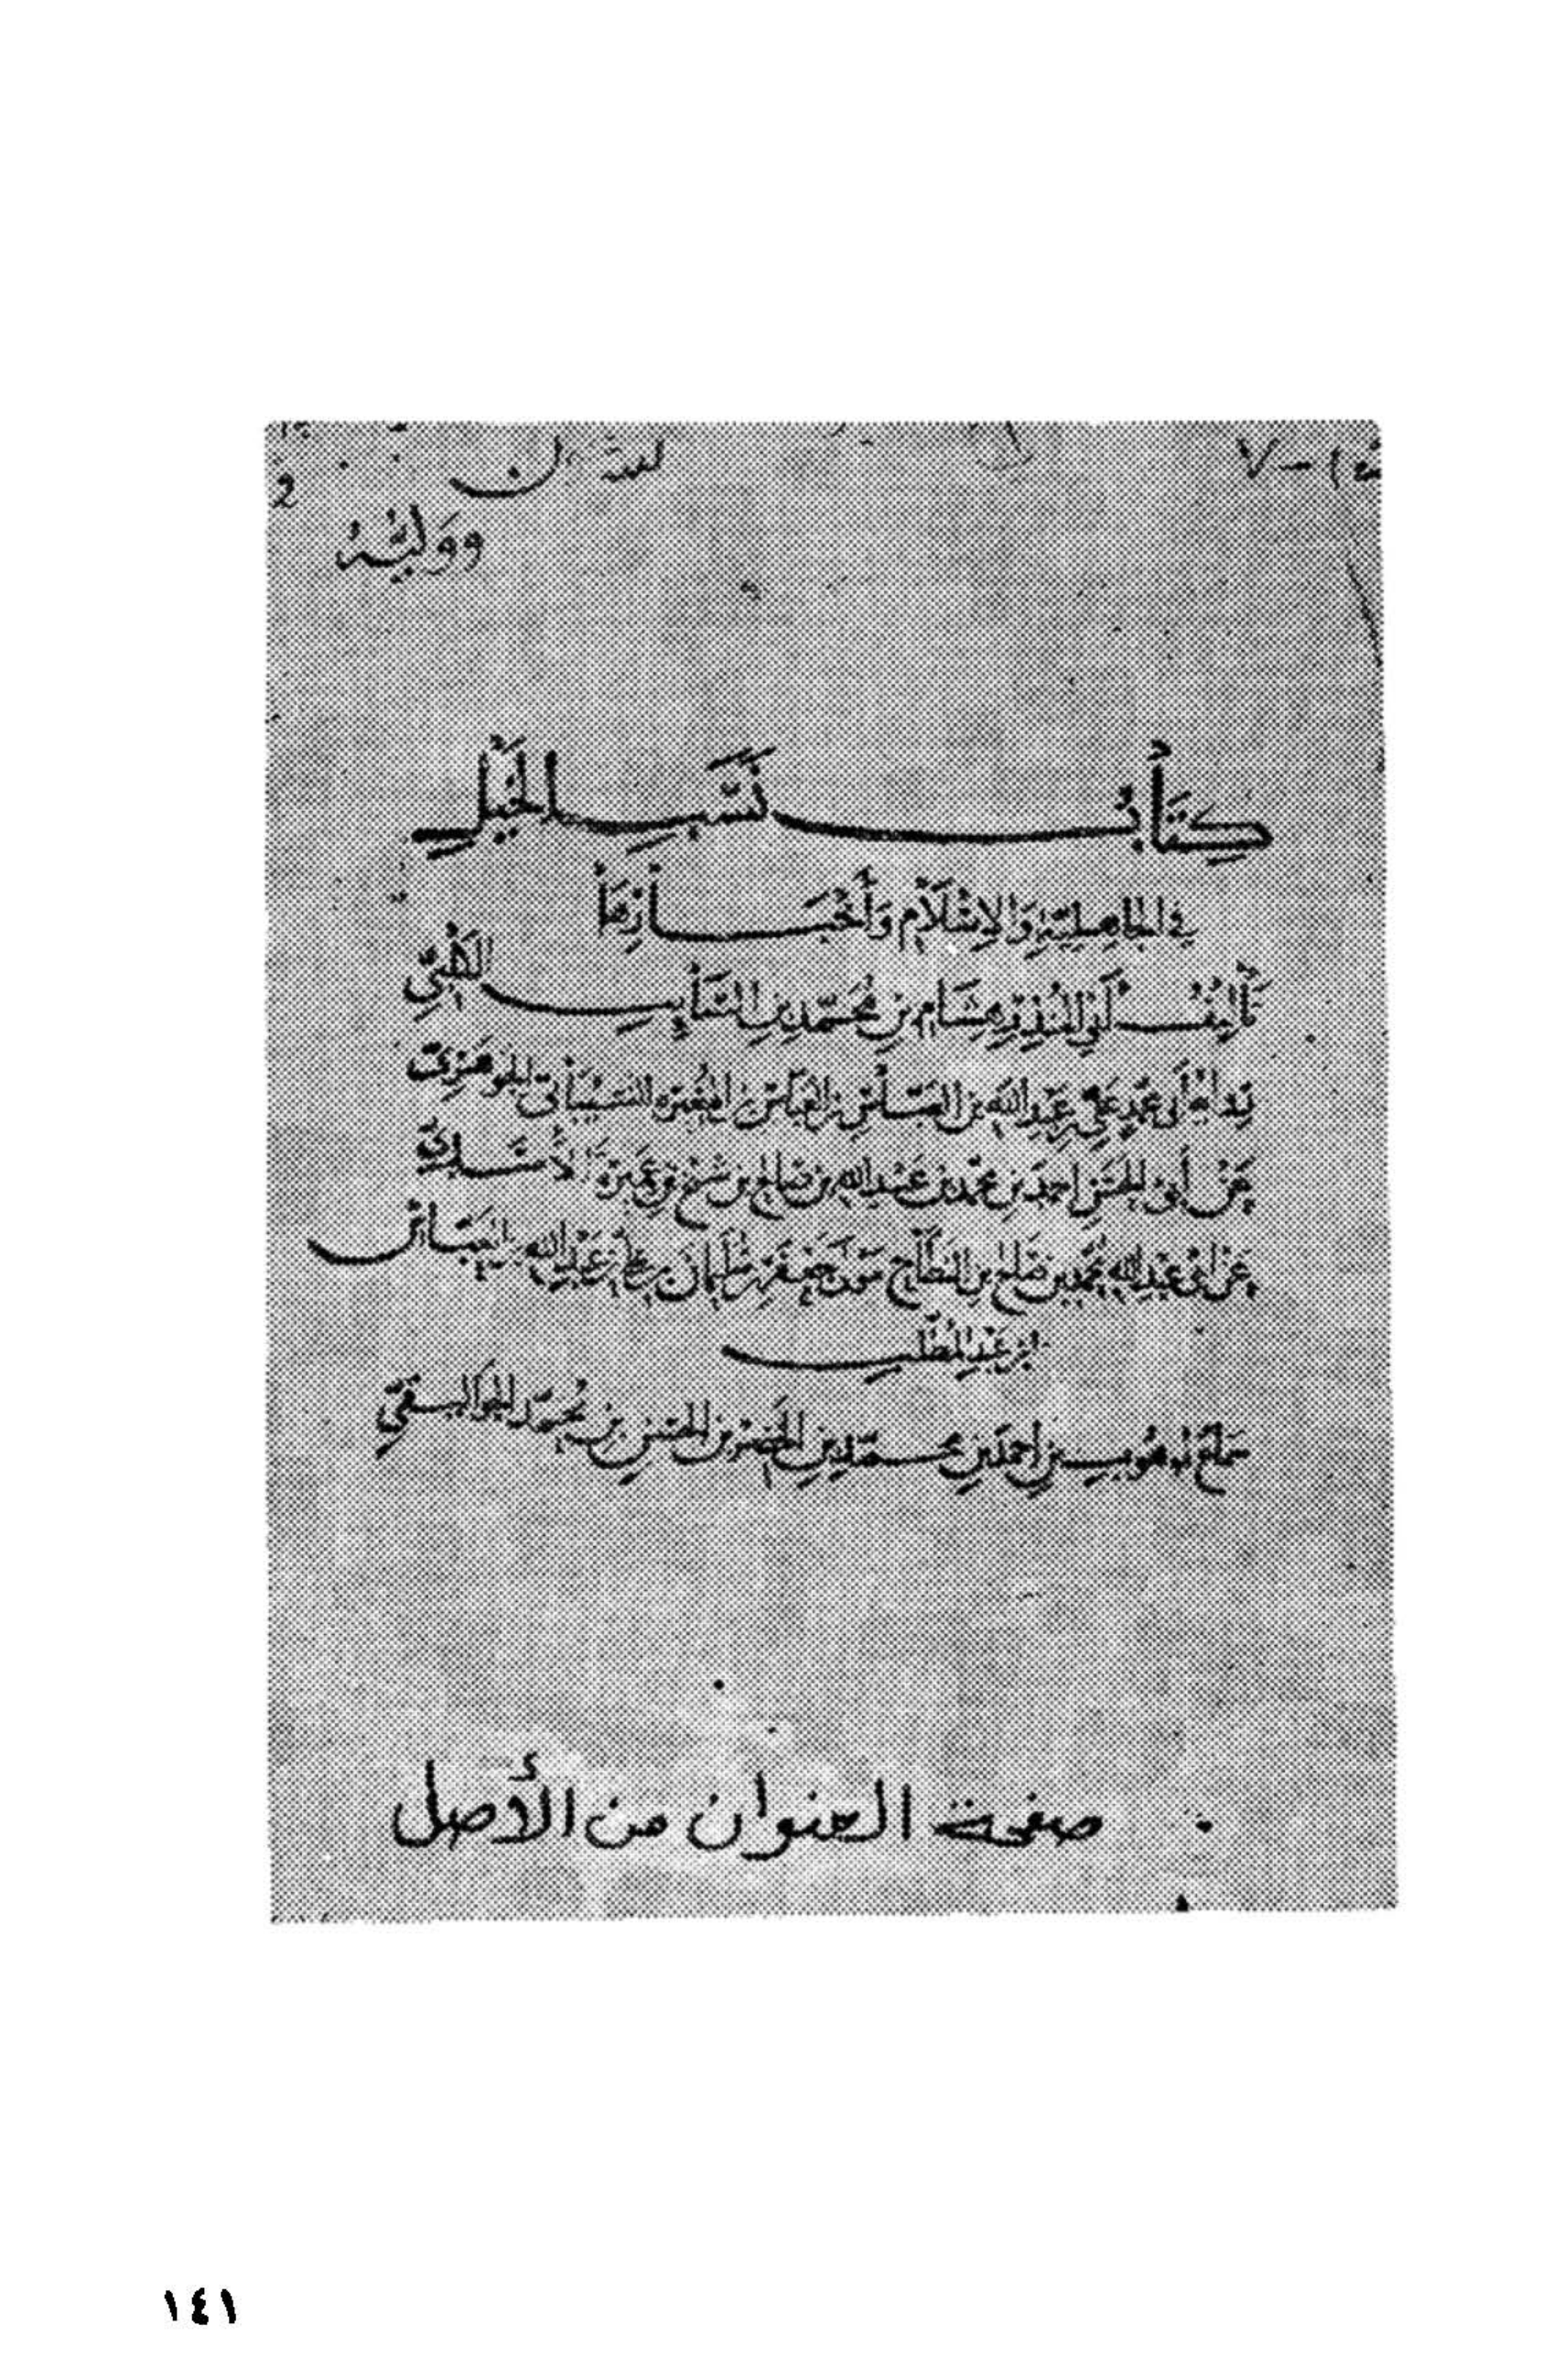 2
ووليه
كِتَابُ نَسَبِ الخَيْلِ
في الجاهلية والإسلام وأخبارها
تأليف أبي المنذر هشام بن محمد بن السائب الكلبي
رواية أبي محمد علي بن عبد الله بن العباس بن العباس بن المغيرة الشيباني الجوهري
عن أبي الحسن احمد بن محمد بن عبد الله بن صالح بن شيخ بن عميرة الأسدي
عن أبي عبد الله محمد بن صالح بن النطاح مولى جعفر بن سليمان بن علي بن عبد الله بن العباس
ابن عبد المطلب
سماع لموهوب بن احمد بن محمد بن الخضر بن الحسن بن محمد الجواليقي
صفحة العنوان من الأصل
١٤١